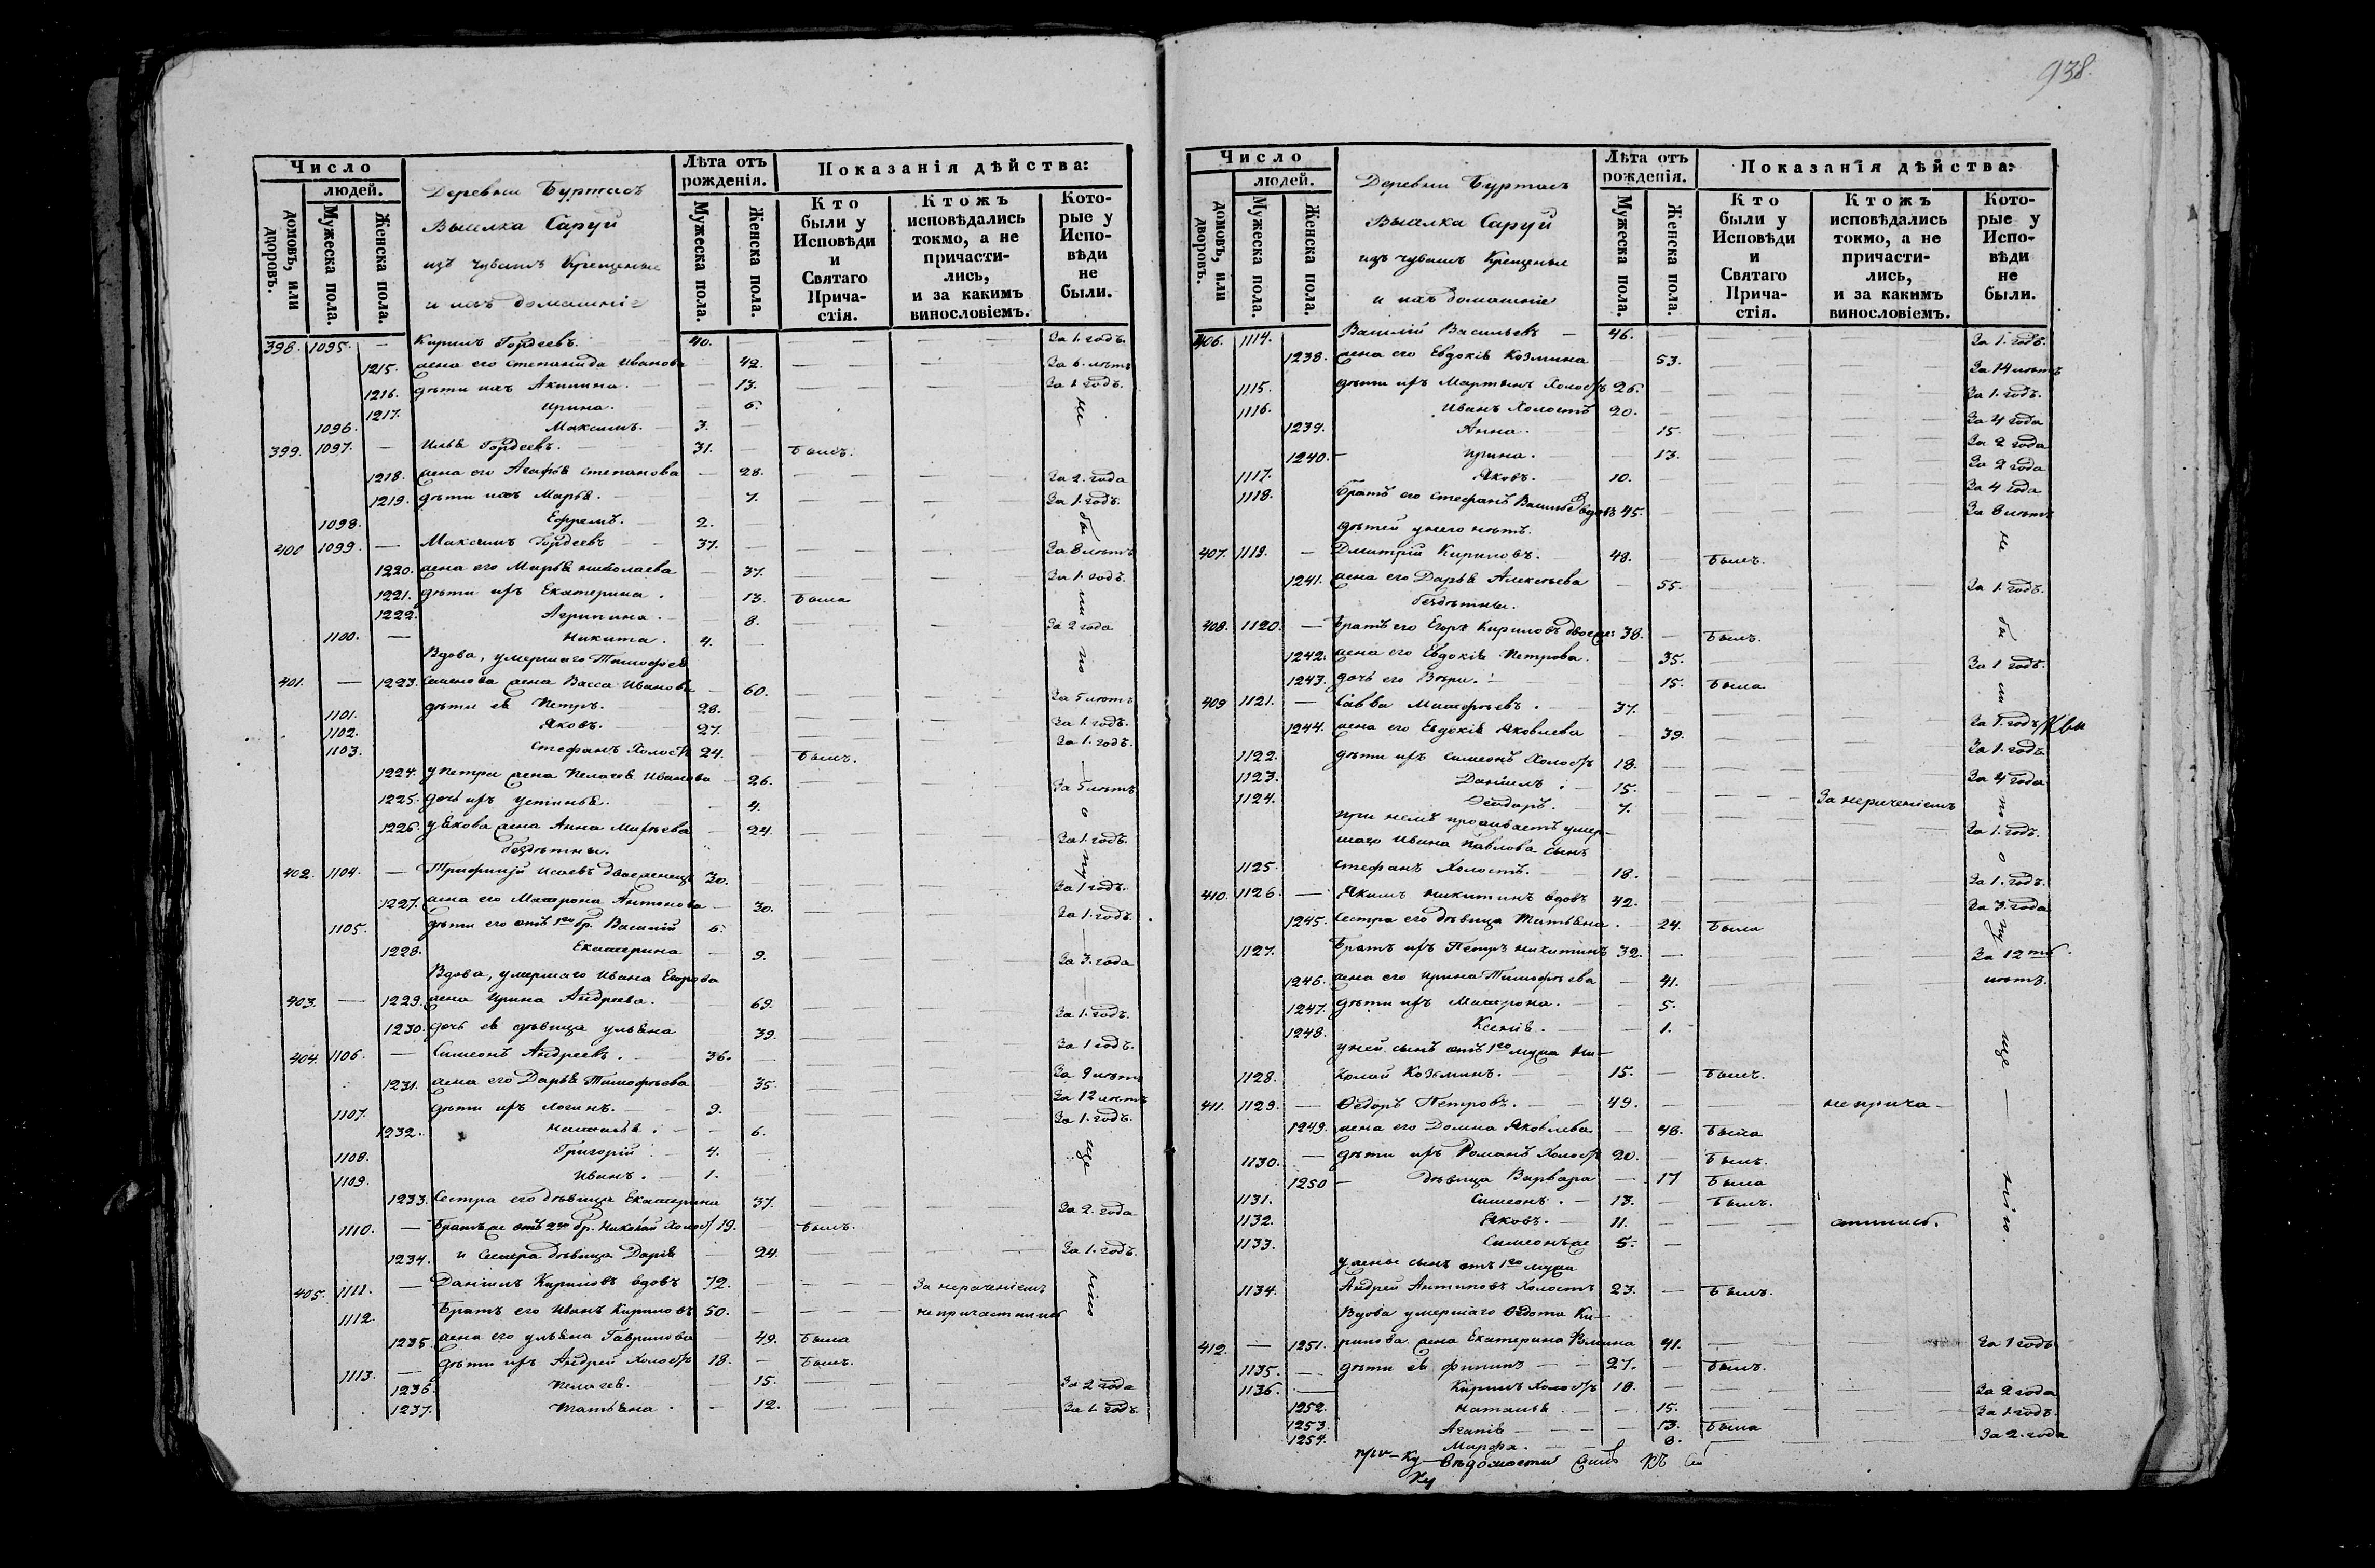 938.
Число
людей.
домовъ, или дворовъ.
Мужеска пола.
Женска пола.
Деревни Буртасъ
Выселка Саруй
изъ чувашъ Крещеные
и ихъ домашніе
Лѣта отъ рожденія.
Мужеска пола.
Женска пола.
Показанія дѣйства:
Кто были у Исповѣди и Святаго Прича-стія.
Ктожъ исповѣдались токмо, а не причасти-лись, и за какимъ винословіемъ.
Кото-рые у Испо-вѣди не были.
398. 1095. — Кирилъ Гордеевъ. 40. За 1. годъ.
1215. жена его Степанида Иванова 42. За 6. лѣтъ
1216. дѣти ихъ Акилина. 13. За 1. годъ.
1217. Ирина. 6.
1096. Максимъ. 3.
399. 1097. — Илья Гордеевъ. 31. Былъ.
1218. жена его Агафья Степанова 28. За 2. года
1219. дѣти ихъ Марья. 7. За 1. годъ.
1098. Ефремъ. 2.
400 1099. — Максимъ Гордеевъ 37. За 8 лѣтъ
1220. жена его Марья Николаева 37. За 1. годъ.
1221. дѣти ихъ Екатерина. 13. Была
1222. Агрипина. 8. За 2 года
1100. — Никита. 4.
Вдова, умершаго Тимофея
401. — 1223. Семенова жена Васса Иванова 60. За 5 лѣтъ
1101. дѣти ея Петръ. 28. За 1. годъ.
1102. Яковъ. 27. За 1. годъ.
1103. Стефанъ Холостъ 24. Былъ.
1224. у Петра жена Пелагея Иванова 26. За 5 лѣтъ
1225. дочь ихъ Устинья. 4.
1226. у Якова жена Анна 24. За 1. годъ.
бездѣтны.
402. 1104. — Трифилій Исаевъ двоеженецъ 30. За 1 годъ.
1227. жена его Матрона Антонова 30. За 1. годъ.
1105. дѣти его отъ 1го бр. Василій 6.
1228. Екатерина 9. За 3. года
Вдова, умершаго Ивана Егорова
403. — 1229. жена Ирина Андреева. 69. За 1. годъ.
1230. дочь ея дѣвица Ульяна 39. За 1 годъ.
404. 1106. — Симеонъ Андреевъ. 36. За 9 лѣтъ
1231. жена его Дарья Тимофѣева 35. За 12 лѣтъ
1107. дѣти ихъ Логинъ. 9. За 1. годъ.
1232. Наталья. 6.
1108. Григорій. 4.
1109. Иванъ. 1.
1233. Сестра его дѣвица Екатерина 37. За 2. года
1110. — Братъ же отъ 2го бр. Николай Холост 19. Былъ.
1234. и Сестра дѣвица Дарія 24. За 1. годъ.
405. 1111. — Даніилъ Кириловъ вдовъ 72. За нераченіемъ
1112. Братъ его Иванъ Кириловъ 50. не причастились
1235. жена его Ульяна Гаврилова 49. Была
1113. — дѣти ихъ Андрей Холостъ 18. Былъ.
1236. Пелагея. 15. За 2 года
1237. Татьяна. 12. За 1. годъ.
Число
людей.
домовъ, или дворовъ.
Мужеска пола.
Женска пола.
Деревни Буртасъ
Выселка Саруй
изъ чувашъ Крещеные
и ихъ домашніе
Лѣта отъ рожденія.
Мужеска пола.
Женска пола.
Показанія дѣйства:
Кто были у Исповѣди и Святаго Прича-стія.
Ктожъ исповѣдались токмо, а не причасти-лись, и за какимъ винословіемъ.
Кото-рые у Испо-вѣди не были.
406. 1114. Василій Васильевъ 46. За 1. годъ.
1238. жена его Евдокія Козмина 53. За 14 лѣтъ
1115. дѣти ихъ Мартынъ Холостъ 26. За 1. годъ.
1116. Иванъ Холостъ 20. За 4 года
1239. Анна. 15. За 2 года
1240. Ирина. 13. За 2 года
1117. Яковъ. 10. За 4 года
1118. Братъ его Стефанъ вдовъ 45. За 8 лѣтъ
дѣтей у него нѣтъ.
407. 1119. — Дмитрій Кириловъ. 48. Былъ.
1241. жена его Дарья Алексѣева 55. За 1. годъ.
бездѣтны.
408. 1120. — Братъ его Егоръ Кириловъ двоеже: 38. Былъ.
1242. жена его Евдокія Петрова. 35. За 1 годъ.
1243. дочь его 15. Была
409 1121. — Савва 37. За 1. годъ
1244. жена его Евдокія Яковлева 39. За 1. годъ.
1122. дѣти ихъ Симеонъ Холостъ 18. За 4 года
1123. Даніилъ. 15. За нераченіемъ
1124. Ѳеодоръ. 7. За 1. годъ.
при немъ проживаетъ умер-
шаго Ивана Павлова сынъ
1125. Стефанъ Холостъ. 18. За 1. годъ.
410. 1126. — Якимъ Никитинъ вдовъ 42. За 3. года
1245. Сестра его дѣвица Татьяна. 24. Была
1127. Братъ ихъ Петръ Никитинъ 32. За 12ть
1246. жена его Ирина Тимофѣева 41. лѣтъ.
1247. дѣти ихъ Матрона. 5.
1248. Ксенія. 1.
у ней сынъ отъ 1го мужа Ни-
1128. колай Козьминъ. 15. Былъ.
411. 1129. — Ѳедоръ Петровъ. 49. не прича-
1249. жена его Домна Яковлева 48. Была
1130. — дѣти ихъ Романъ Холостъ 20. Былъ.
1250 — Дѣвица Варвара 17 Была
1131. Симеонъ. 13. Былъ.
1132. Яковъ. 11. стились.
1133. Симеонъ же 5.
у жены сынъ отъ 1го мужа
1134. Андрей Антиповъ Холостъ 23. Былъ.
Вдова умершаго Ѳедота Ки-
412. — 1251. рилова жена Екатерина 41. За 1 годъ
1135. — дѣти ея Филипъ 27. Былъ.
1136. — Кирилъ Холостъ 18. За 2 года
1252. Наталья 15. За 1 годъ.
1253. Агапія 13. Была
1254. Марфа. 8. За 2. года
вѣдомости